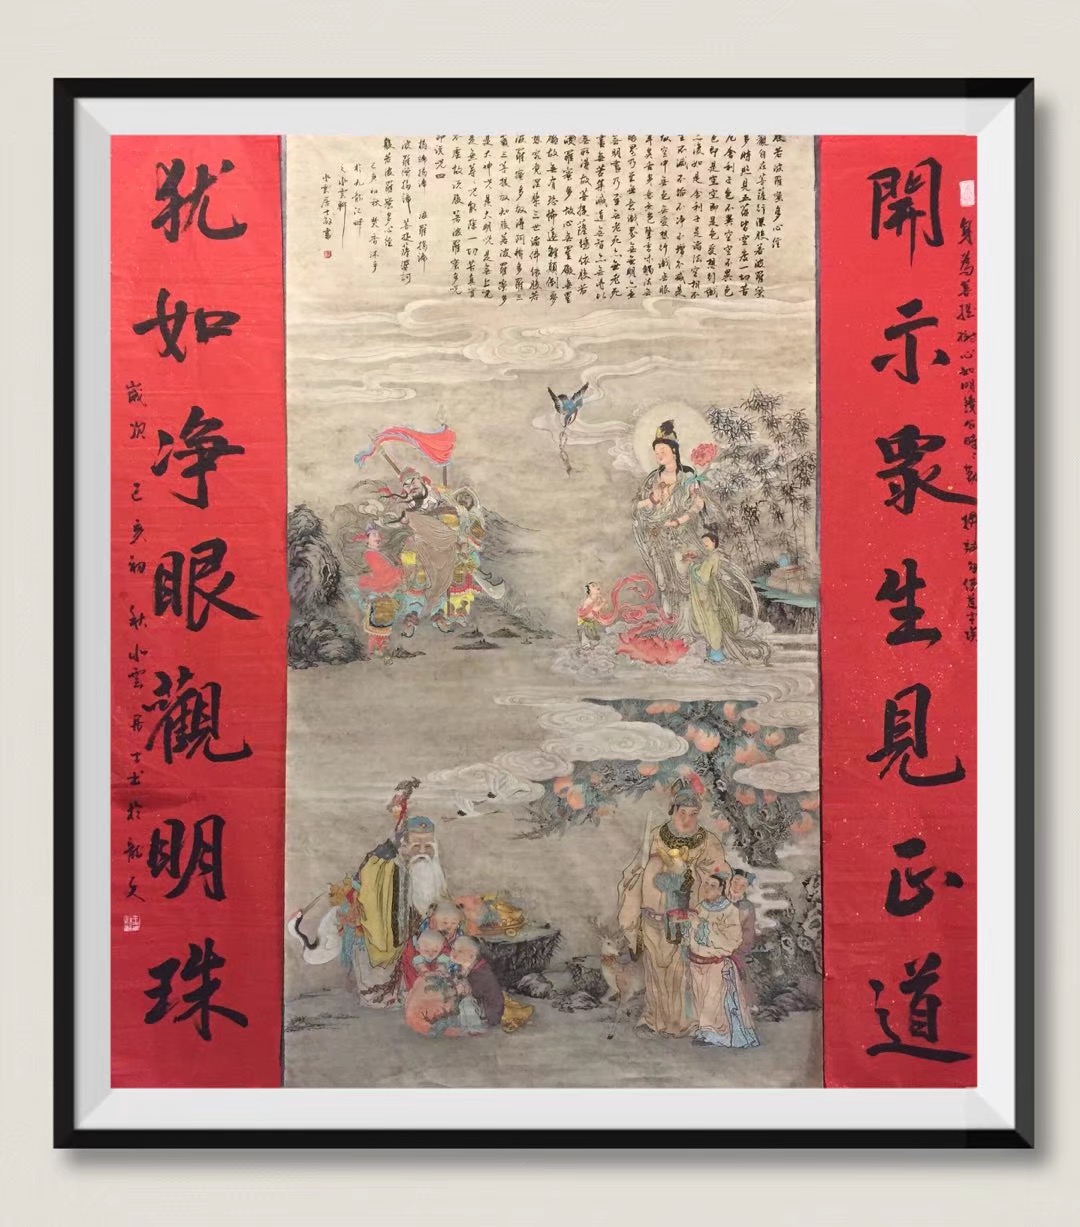 身為菩提樹心如明鏡台時時勤
開示眾生見正道
般若波羅蜜多心経
觀自在菩薩行深般若波羅蜜
多時照見五蘊皆空度一切苦
厄舍利子色不異空空不異色
色即是空空即是色受想行識
亦復如是舍利子是諸法空相不
生不滅不垢不净不增不減是
故空中無色無受想行識無眼
耳鼻舌身意無色聲香味觸法無
眼界乃至無意識界無無明亦無
無明盡乃至無老死亦無老死
盡無苦集滅道無智亦無得以
無所得故菩提薩埵依般若
波羅蜜多故心無罣礙無罣
礙故無有恐怖遠離顛倒夢
想究竟涅槃三世諸佛依般若
波羅蜜多故得阿耨多羅三
藐三菩提故知般若波羅蜜多
是大神咒是大明咒是無上咒
是無等等咒能除一切苦真實
不虛故說般若波羅蜜多咒
即說咒曰
揭諦揭諦 波羅揭諦
波羅僧揭諦 菩提薩婆訶
般若波羅蜜多心経
己亥初秋焚香沐手
於九龍江畔
之水雲軒
水雲居士敬書
犹如净眼觀明珠
歲次己亥初秋水雲居士书於龍文